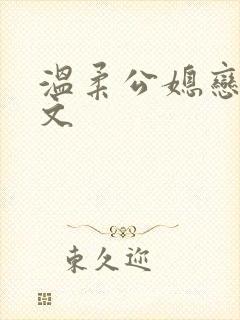 温柔公媳戀
文
東久迩